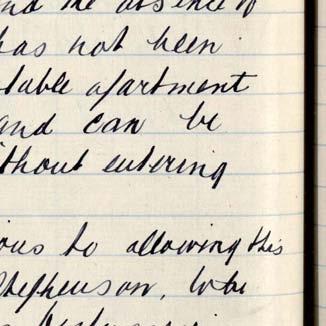 and the absence of
has not been
table apartment
and can be
ithout entering
ous to allowing this
Stephenson, to be